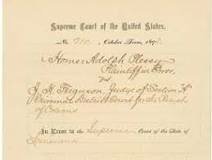 Supreme Court of the United States,
No. 210, October Term, 1895.
Homer Adolph Plessy
Plaintiff in Error
vs.
J. H. Ferguson, Judge of Section "A"
Criminal District Court for the Parish
of Orleans
In Error to the Supreme Court of the State of
Louisiana